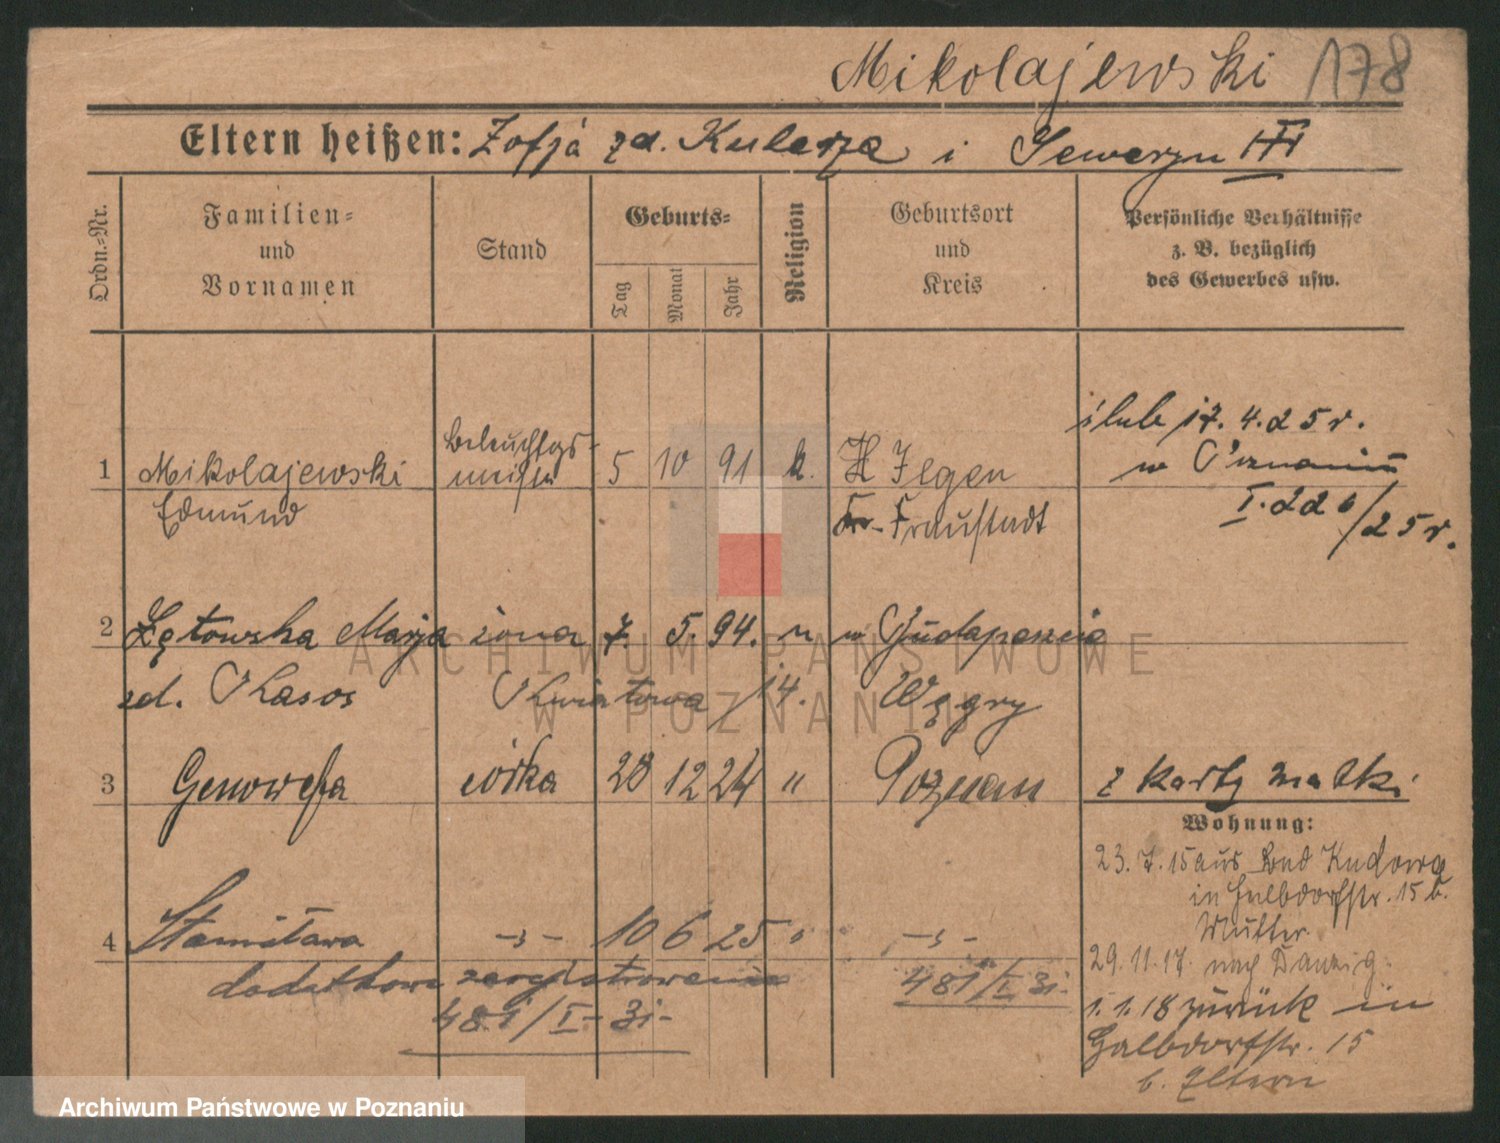 Mikolajewski 178
Eltern heißen: Zofja zd. Kulerza i Seweryn III
Ordn.-Nr.
Familien-
und
Vornamen
Stand
Geburts-
Tag
Monat
Jahr
Religion
Geburtsort
und
Kreis
Persönliche Verhältnisse
z. B. bezüglich
des Gewerbes usw.
ślub 17. 4. 25 r.
w Poznaniu
I. 220/25 r.
1 Mikolajewski Beleuchtgs- 5 10 91 k. H Ilgen
Edmund meister Kr. Fraustadt
2 Łętowska Marja żona 7. 5. 94. w Budapeszcie
zd. Kasos Kwiatowa 14. Węgry
3 Genowefa córka 28 12 24 " Poznań z karty matki
Wohnung:
23. 7. 15 aus Bad Kudowa
in Halbdorfstr. 15 b.
Mutter
4 Stanisława -"- 10 6 25 " -"-
29. 11. 17. nach Danzig.
dodatkowo zarejestrowana 481/I. 31.
481/I. 31.
1. 1. 18 zurück in
Halbdorfstr. 15
b. Eltern
ARCHIWUM PAŃSTWOWE
W POZNANIU
Archiwum Państwowe w Poznaniu